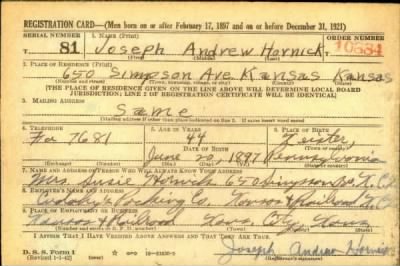 REGISTRATION CARD—(Men born on or after February 17, 1897 and on or before December 31, 1921)
SERIAL NUMBER 1. NAME (Print) ORDER NUMBER
81 Joseph Andrew Hornick 10
(First) (Middle) (Last)
2. PLACE OF RESIDENCE (Print)
650 Simpson Ave Kansas Kansas
(Number and street) (Town, township, village, or city) (County) (State)
[THE PLACE OF RESIDENCE GIVEN ON THE LINE ABOVE WILL DETERMINE LOCAL BOARD
JURISDICTION; LINE 2 OF REGISTRATION CERTIFICATE WILL BE IDENTICAL]
3. MAILING ADDRESS
Same
(Mailing address if other than place indicated on line 2. If same insert word same)
4. TELEPHONE 5. AGE IN YEARS 6. PLACE OF BIRTH
7681 44
DATE OF BIRTH (Town or county)
June 1897 Pennsylvania
(Exchange) (Number) (Mo.) (Day) (Yr.) (State or country)
7. NAME AND ADDRESS OF PERSON WHO WILL ALWAYS KNOW YOUR ADDRESS
Mrs. Susie Hornick 650 Simpson
8. EMPLOYER'S NAME AND ADDRESS
Cudahy Packing Co.
9. PLACE OF EMPLOYMENT OR BUSINESS
Railroad
I AFFIRM THAT I HAVE VERIFIED ABOVE ANSWERS AND THAT THEY ARE TRUE.
D. S. S. Form 1
(Revised 1-1-42) (over)
Joseph Andrew Hornick